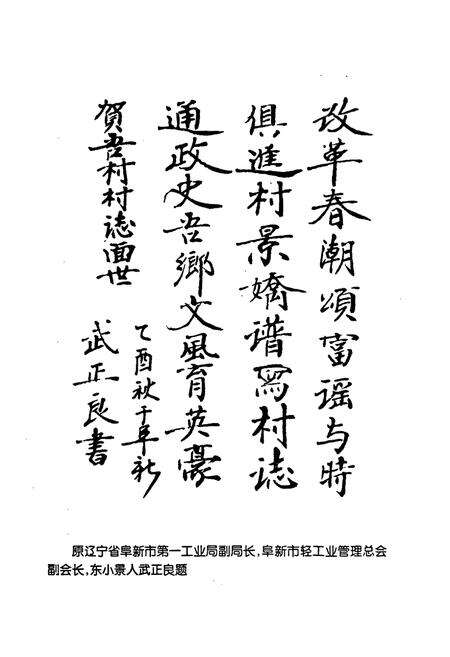 改革春潮頌富谣与時
俱進村景嬌谱寫村誌
通政史吾鄉文風育英豪
賀吾村村誌面世
乙酉秋于阜新
武正良書
原辽宁省阜新市第一工业局副局长,阜新市轻工业管理总会
副会长,东小景人武正良题